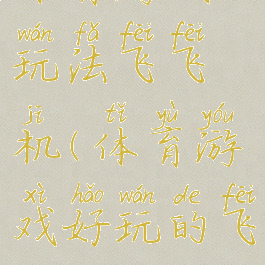 wán fǎ fēi fēi
玩法飞飞
jī tǐ yù yóu
机(体育游
xì hǎo wán de fēi
戏好玩的飞